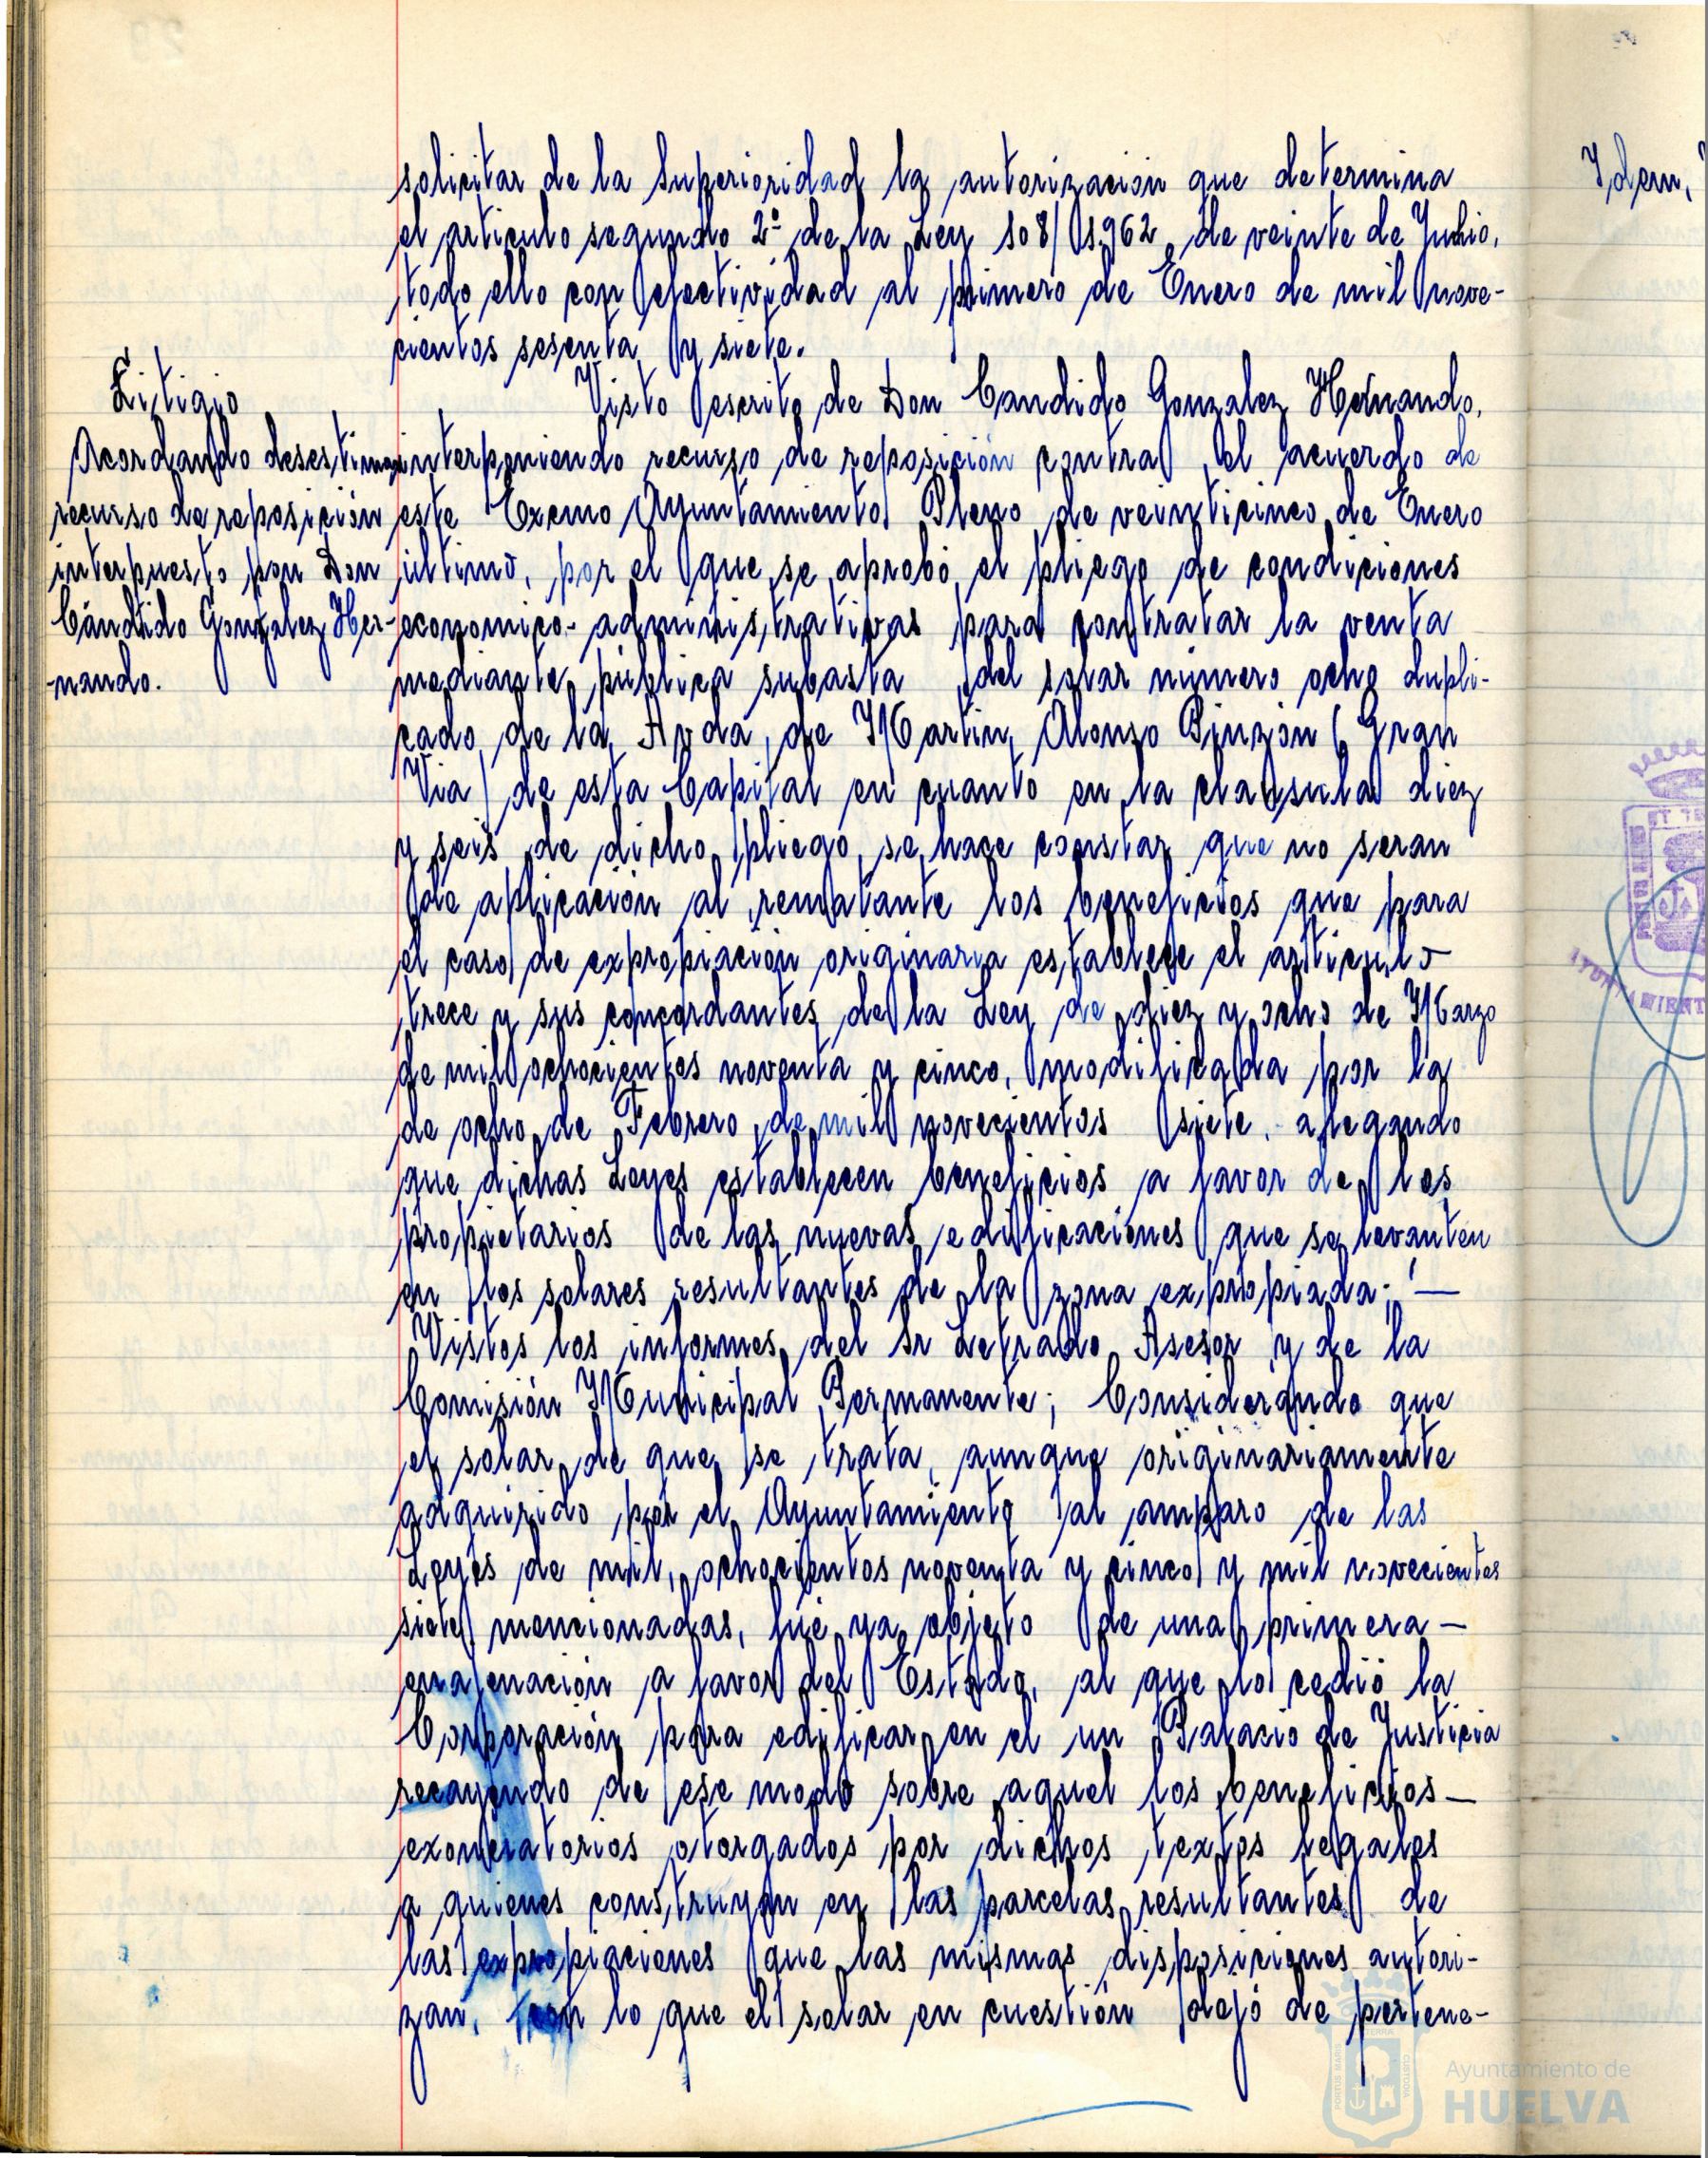 solicitar de la Superioridad la autorización que determina
el articulo segundo 2º de la Ley 108/1.962, de veinte de Julio,
todo ello con efectividad al primero de Enero de mil nove-
cientos sesenta y siete.
Litigio
Acordando desestimar
recurso de reposición
interpuesto por Don
Cándido Gonzalez Her-
-nando.
Visto escrito de Don Candido Gonzalez Hernando,
interponiendo recurso de reposición contra el acuerdo de
este Excmo Ayuntamiento Pleno de veinticinco de Enero
ultimo, por el que se aprobó el pliego de condiciones
economico-administrativas para contratar la venta
mediante pública subasta del solar número ocho dupli-
cado de la Avda, de Martin Alonso Pinzón (Gran
Via) de esta Capital en cuanto en la claúsula diez
y seis de dicho pliego se hace constar que no seran
de aplicación al rematante los beneficios que para
el caso de expropiación originaria establece el articulo
trece y sus concordantes de la Ley de diez y ocho de Marzo
de mil ochocientos noventa y cinco, modificada por la
de ocho de Febrero de mil novecientos siete, alegando
que dichas Leyes establecen beneficios a favor de los
propietarios de las nuevas edificaciones que se levanten
en los solares resultantes de la zona expropiada; —
Vistos los informes del Sr Letrado Asesor y de la
Comisión Municipal Permanente; Considerando que
el solar de que se trata, aunque originariamente
adquirido por el Ayuntamiento al amparo de las
Leyes de mil ochocientos noventa y cinco y mil novecientos
siete mencionadas, fué ya objeto de una primera —
enajenación a favor del Estado, al que lo cedió la
Corporación para edificar en el un Palacio de Justicia
recayendo de ese modo sobre aquel los beneficios —
exoneratorios otorgados por dichos textos legales
a quienes construyan en las parcelas resultantes de
las expropiaciones que las mismas disposiciones autori-
zan, con lo que el solar en cuestión dejó de pertene-
Idem,
Ayuntamiento de
HUELVA